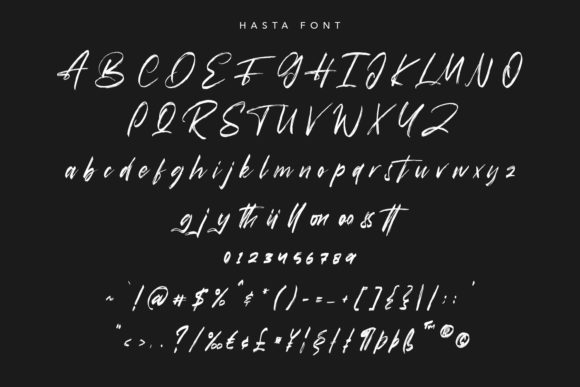 HASTA FONT
A B C D E F G H I J K L M N O
P Q R S T U V W X Y Z
a b c d e f g h i j k l m n o p q r s t u v w x y z
g j y th ii ll on oo ss tt
0 1 2 3 4 5 6 7 8 9
~ ` ! @ # $ % ^ & * ( ) - = _ + [ ] { } | / : ; '
" < > , . ? / | ‰ € ¢ £ ¤ ¥ ¦ § ƒ ¶ þ ß ™ ® ©